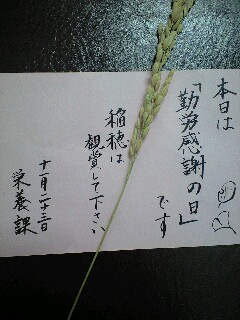 本日は
「勤労感謝の日」
です
稲穂は
観賞して下さい
十一月二十三日
栄養課